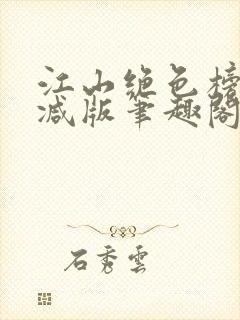 江山绝色榜
减版笔趣阁
石秀雲